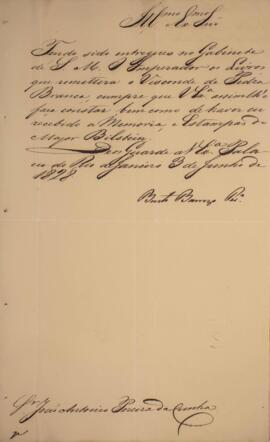 Illmo Snr
Tendo sido entregues no Gabinete
de S. M. O Imperador os Livros
que remettera o Visconde de Pedra
Branca, cumpre que V Sa
faça constar, bem como de haver eu
recebido a Memoria, e Estampas do
Major Bilstein
Deos Guarde a V. Sa Pala
cio do Rio de Janeiro 3 de Junho de
1828
Bento Barrozo Pera
Snr João Antonio Pereira da Cunha